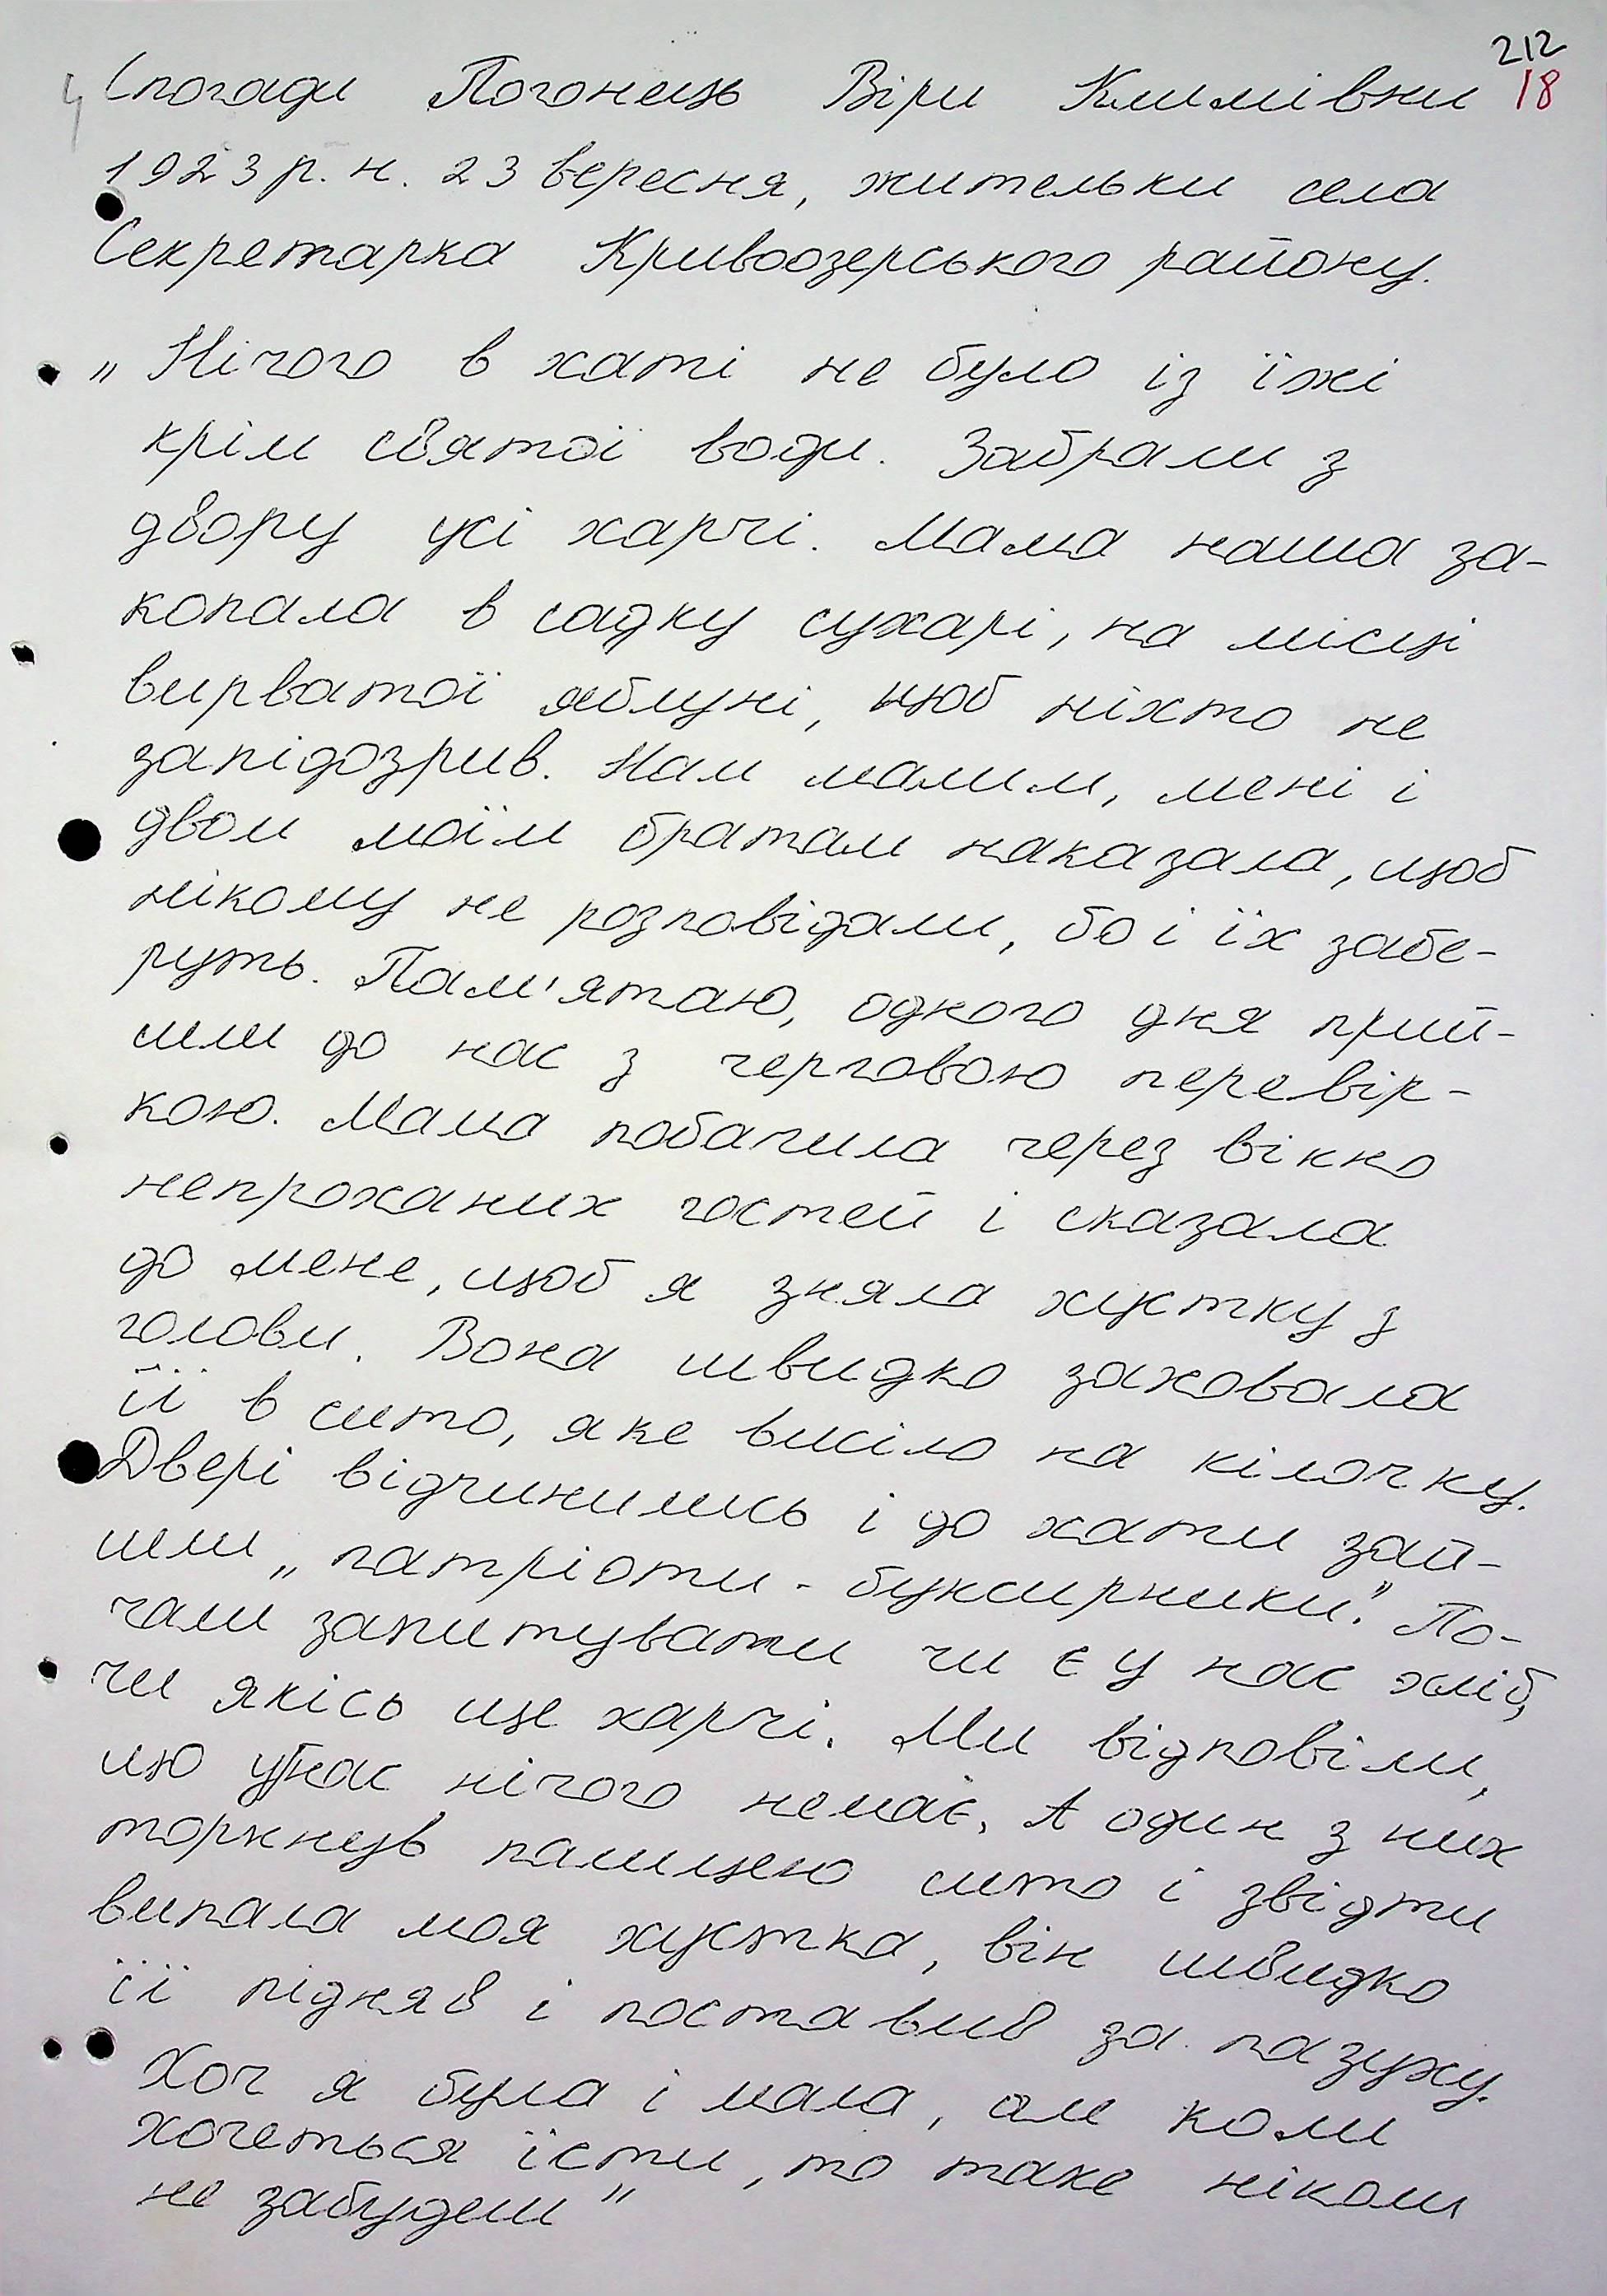 212
18
Спогади Погонець Віри Климівни
1923 р. н. 23 вересня, жительки села
Секретарка Кривоозерського району.
„Нічого в хаті не було із їжі
крім святої води. Забрали з
двору усі харчі. Мама наша за-
копала в садку сухарі, на місці
вирватої яблуні, щоб ніхто не
запідозрив. Нам малим, мені і
двом моїм братам наказала, щоб
нікому не розповідали, бо і їх забе-
руть. Пам'ятаю, одного дня прий-
шли до нас з черговою перевір-
кою. Мама побачила через вікно
непроханих гостей і сказала
до мене, щоб я зняла хустку з
голови. Вона швидко заховала
її в сито, яке висіло на кілочку.
Двері відчинились і до хати зай-
шли „патріоти - буксирники". По-
чали запитувати чи є у нас хліб,
чи якісь ще харчі. Ми відповіли,
що у нас нічого немає. А один з них
торкнув палицею сито і звідти
випала моя хустка, він швидко
її підняв і поставив за пазуху.
Хоч я була і мала, але коли
хочеться їсти, то таке ніколи
не забудеш"